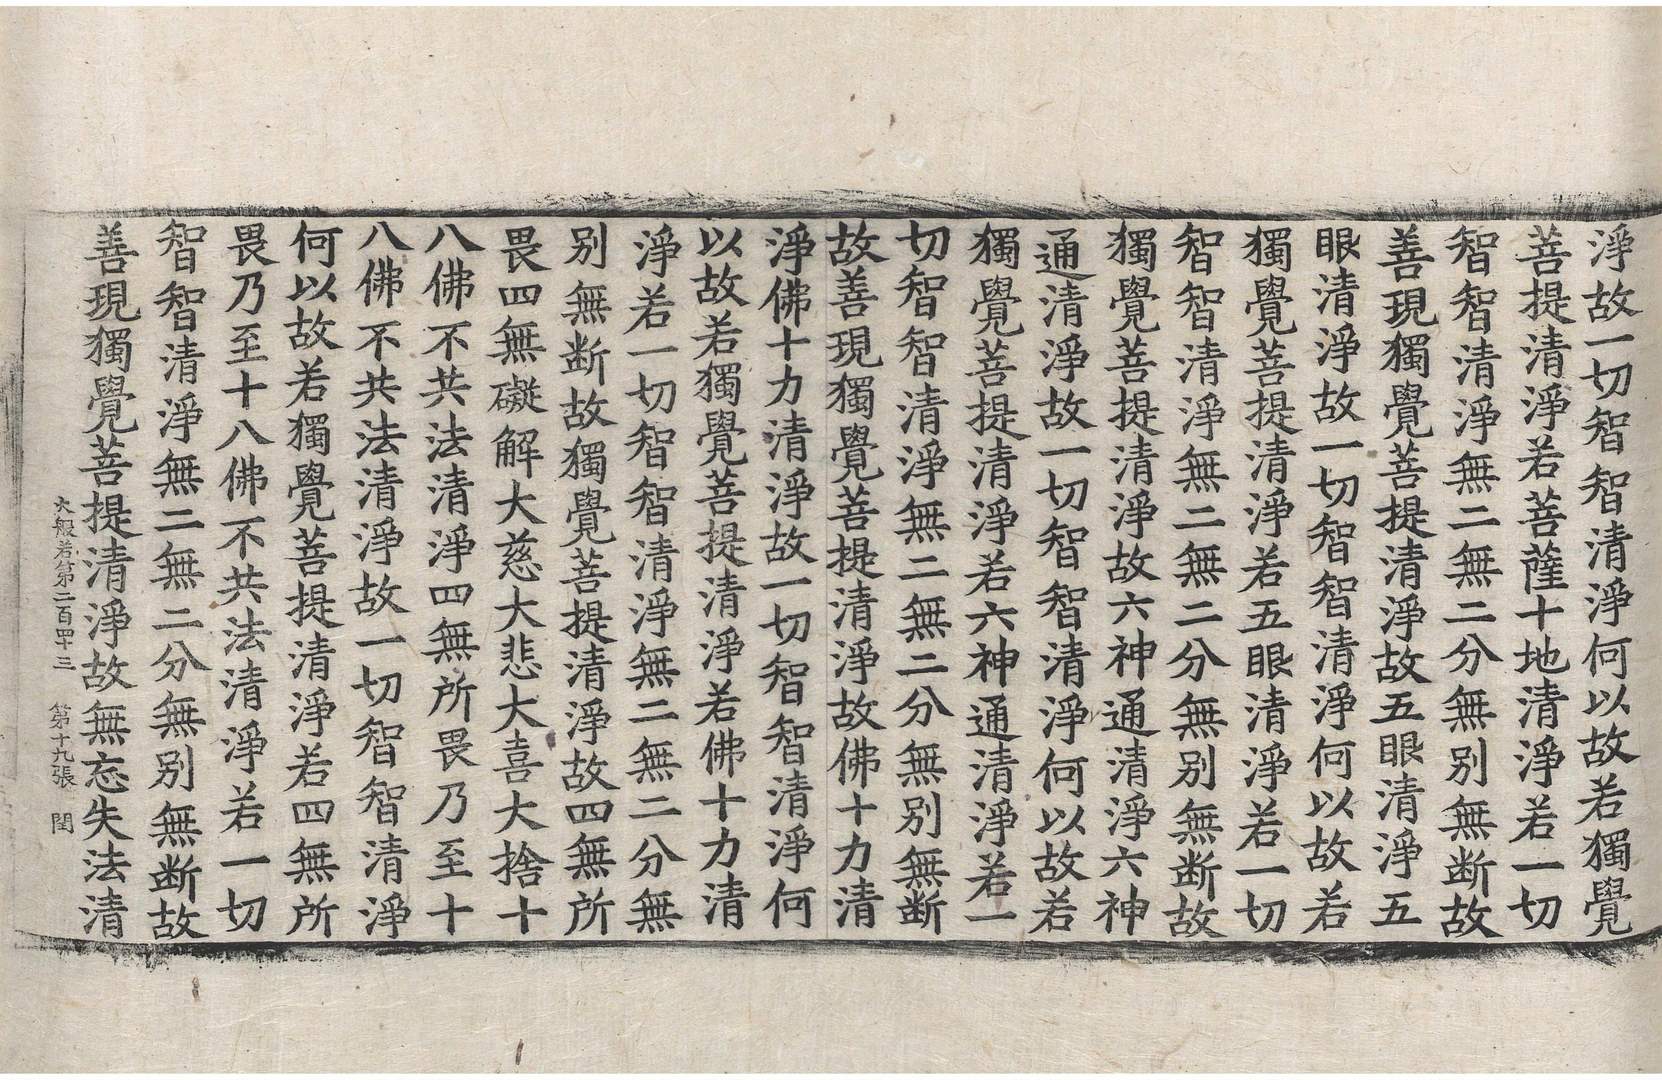 淨故一切智智清淨何以故若獨覺
菩提清淨若菩薩十地清淨若一切
智智清淨無二無二分無別無断故
善現獨覺菩提清淨故五眼清淨五
眼清淨故一切智智清淨何以故若
獨覺菩提清淨若五眼清淨若一切
智智清淨無二無二分無別無断故
獨覺菩提清淨故六神通清淨六神
通清淨故一切智智清淨何以故若
獨覺菩提清淨若六神通清淨若一
切智智清淨無二無二分無別無断
故善現獨覺菩提清淨故佛十力清
淨佛十力清淨故一切智智清淨何
以故若獨覺菩提清淨若佛十力清
淨若一切智智清淨無二無二分無
別無断故獨覺菩提清淨故四無所
畏四無礙解大慈大悲大喜大捨十
八佛不共法清淨四無所畏乃至十
八佛不共法清淨故一切智智清淨
何以故若獨覺菩提清淨若四無所
畏乃至十八佛不共法清淨若一切
智智清淨無二無二分無別無断故
善現獨覺菩提清淨故無忘失法清
大般若第二百四十三 第十九張 閏